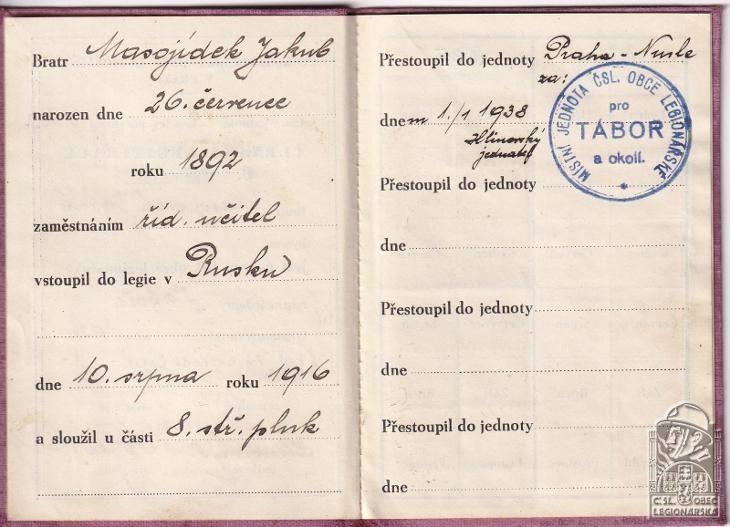 Bratr Masojídek Jakub
narozen dne 26. července
roku 1892
zaměstnáním říd. učitel
vstoupil do legie v Rusku
dne 10. srpna roku 1916
a sloužil u části 8. stř. pluk
Přestoupil do jednoty Praha-Nusle
za:
dnem 1./1 1938
Hlinovský
jednatel
MÍSTNÍ JEDNOTA ČSL. OBCE LEGIONÁŘSKÉ
pro
TÁBOR
a okolí.
Přestoupil do jednoty
dne
Přestoupil do jednoty
dne
Přestoupil do jednoty
dne
ČSL. OBEC
LEGIONÁŘSKÁ